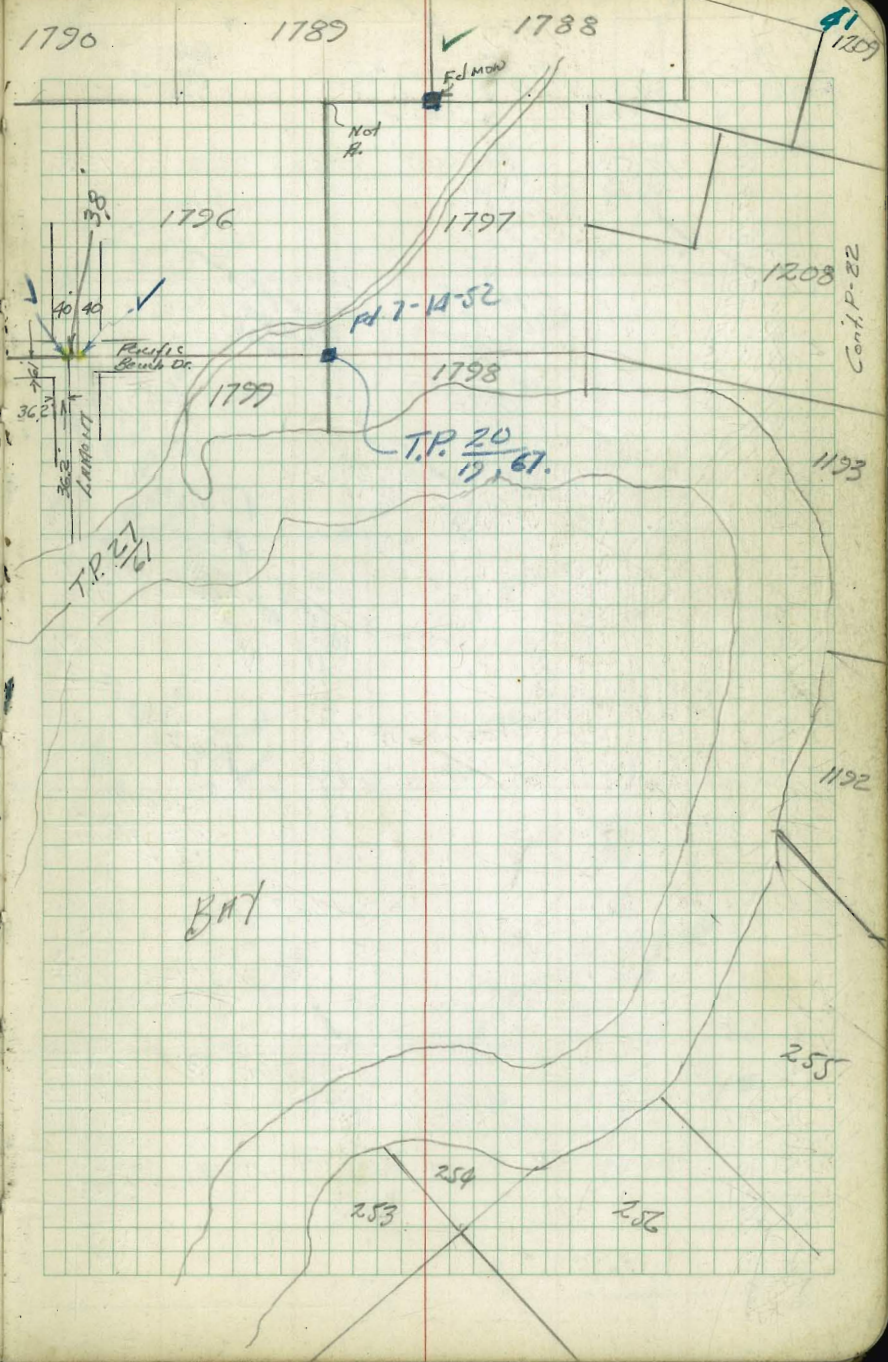 41
1790 1789 1788 1209
Fd Mon
Not
1796
38
1797
1208
Cont. P-22
40 40
Fd. 7-14-52
Pacific
Beach Dr.
1799
1798
36.2
36.2
LAMONT
T.P. 20
19, 67.
1193
T.P. 27/61
1192
BAY
255
254
253
256